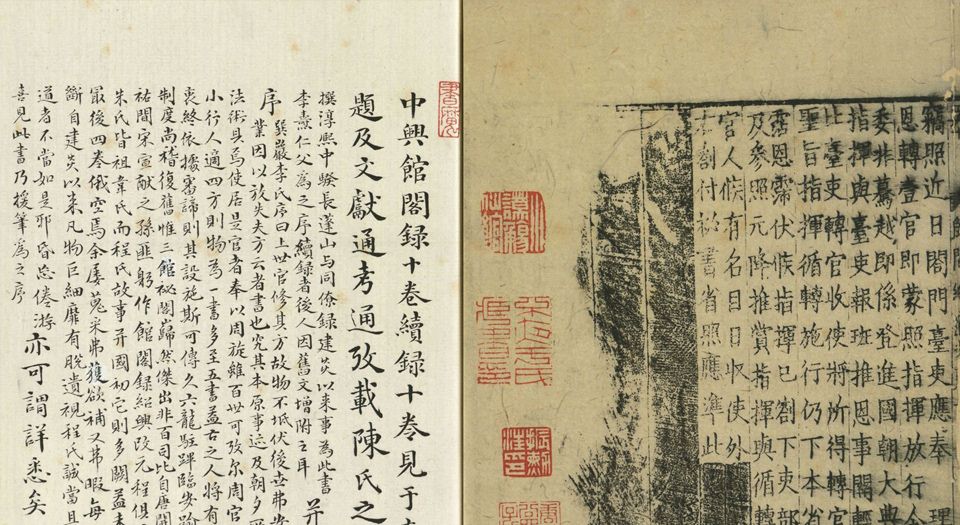 竊照近日閤門臺吏應奉理
恩轉壹官即蒙照指揮放行人
委非驀越即係登進國朝大典
指揮與臺吏報班推恩事體輕
比臺吏轉官收使將所得轉官
聖旨指揮循轉施行仍下本省
霈恩霈伏候指揮已劄下吏部
及參照元降推賞指揮與循轉
官人候有名目日收使外
右劄付祕書省照應準此
中興館閣録十卷續録十卷見于
題及文獻通考通攷載陳氏之
撰淳熙中騤長蓬山与同僚録建炎以來事為此書
李燾仁父為之序續録者後人因舊文增附之耳 并
序 巽巖李氏序曰上世官修其方故物不坻伏後世弗安
業因以放失夫方云者書也究其本原事迹及朝夕所
法術具焉使居是官者奉以周旋雖百世可攷尔周官
小行人適四方則物為一書多至五書益古之人將有
喪終依據審諦則其設施斯可傳久六龍駐蹕臨安踰
制度尚稽復舊惟三館秘閣巋然傑出非百司比自唐開
祐間宋宣獻之孫匪躬作館閣録紹興改元程俱
朱氏皆祖韋氏而程氏故事并國初它則多闕益未
冣後四卷俄空焉余屢蒐采弗獲欲補又弗暇每
斷自建炎以來凡物巨細靡有脱遺視程氏誠當且
道者不當如是邪昏忘倦游 亦可謂詳悉矣
喜見此書乃援筆為之序